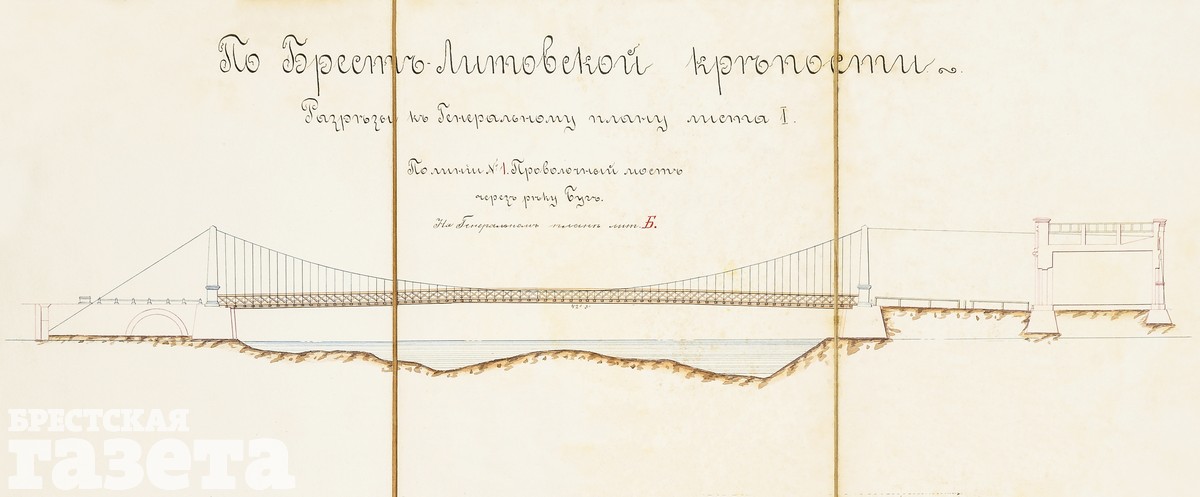 По Брестъ-Литовской крѣпости
Разрѣзы къ Генеральному плану листа I.
По линіи №1. Проволочный мостъ
черезъ рѣку Бугъ.
На Генеральномъ планѣ лит. Б.
БРЕСТСКАЯ
газета